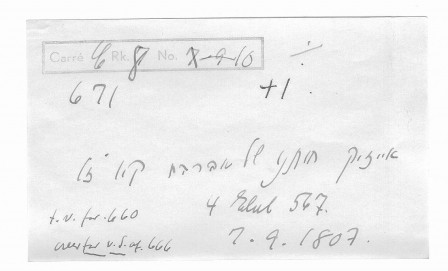 Carré 6 Rk. 8 No. 8-9-10 ÷
671 +1.
אייזיק חתנו של אברהם
t.v. for 660 4 Elul 567.
for v.s. of 666 7.9.1807.